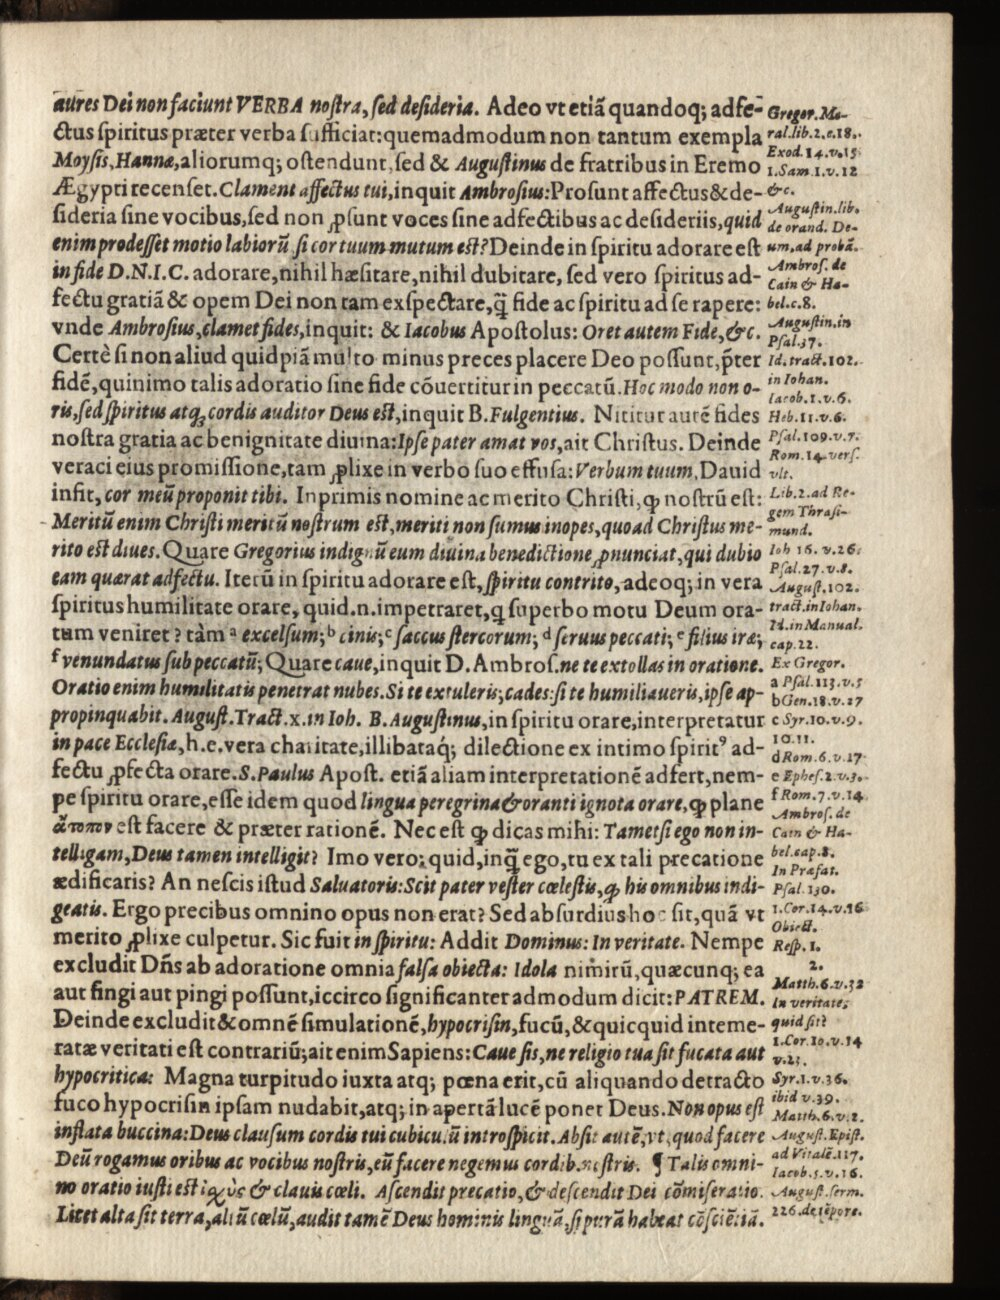 aures Dei non faciunt VERBA noſtra, ſed deſideria. Adeo vt etiã quandoq; adfe-
ctus ſpiritus præter verba ſufficiat: quemadmodum non tantum exempla
Moyſis, Hannæ, aliorumq; oſtendunt, ſed & Auguſtinus de fratribus in Eremo
Ægypti recenſet. Clament affectus tui, inquit Ambroſius: Proſunt affectus & de-
ſideria ſine vocibus, ſed non ꝓſunt voces ſine adfectibus ac deſideriis, quid
enim prodeſſet motio labiorũ, ſi cor tuum mutum eſt? Deinde in ſpiritu adorare eſt
in fide D.N.I.C. adorare, nihil hæſitare, nihil dubitare, ſed vero ſpiritus ad-
fectu gratiã & opem Dei non tam exſpectare, q̃ fide ac ſpiritu ad ſe rapere:
vnde Ambroſius, clamet fides, inquit: & Iacobus Apoſtolus: Oret autem Fide, &c.
Certè ſi non aliud quidpiã multo minus preces placere Deo poſſunt, p̃ter
fidẽ, quinimo talis adoratio ſine fide cõuertitur in peccatũ. Hoc modo non o-
ris, ſed ſpiritus atq; cordis auditor Deus eſt, inquit B. Fulgentius. Nititur autẽ fides
noſtra gratia ac benignitate diuina: Ipſe pater amat vos, ait Chriſtus. Deinde
veraci eius promiſſione, tam ꝓlixe in verbo ſuo effuſa: Verbum tuum, Dauid
infit, cor meũ proponit tibi. Inprimis nomine ac merito Chriſti, ꝙ noſtrũ eſt:
Meritũ enim Chriſti meritũ noſtrum eſt, meriti non ſumus inopes, quoad Chriſtus me-
rito eſt diues. Quare Gregorius indignũ eum diuina benedictione ꝓnunciat, qui dubio
eam quærat adfectu. Iterũ in ſpiritu adorare eſt, ſpiritu contrito, adeoq; in vera
ſpiritus humilitate orare, quid.n.impetraret, q ſuperbo motu Deum ora-
tum veniret? tàm a excelſum; b cinis; c ſaccus ſtercorum; d ſeruus peccati; e filius iræ;
f venundatus ſub peccatũ; Quare caue, inquit D. Ambroſ. ne te extollas in oratione.
Oratio enim humilitatis penetrat nubes. Si te extuleris, cades: ſi te humiliaueris, ipſe ap-
propinquabit. Auguſt. Tract. x. in Ioh. B. Auguſtinus, in ſpiritu orare, interpretatur
in pace Eccleſiæ, h.e. vera charitate, illibataq́; dilectione ex intimo ſpiritꝰ ad-
fectu ꝓfecta orare. S. Paulus Apoſt. etiã aliam interpretationẽ adfert, nem-
pe ſpiritu orare, eſſe idem quod lingua peregrina & oranti ignota orare, ꝙ plane
ἄτοπον eſt facere & præter rationẽ. Nec eſt ꝙ dicas mihi: Tametſi ego non in-
telligam, Deus tamen intelligit? Imo vero: quid, inq̃ ego, tu ex tali precatione
ædificaris? An neſcis iſtud Saluatoris: Scit pater veſter cœleſtis, ꝙ his omnibus indi-
geatis. Ergo precibus omnino opus non erat? Sed abſurdius hoc ſit, quã vt
merito ꝓlixe culpetur. Sic fuit in ſpiritu: Addit Dominus: In veritate. Nempe
excludit Dñs ab adoratione omnia falſa obiecta: Idola nimirũ, quæcunq; ea
aut fingi aut pingi poſſunt, iccirco ſignificanter admodum dicit: PATREM.
Deinde excludit & omnẽ ſimulationẽ, hypocriſin, fucũ, & quicquid inteme-
ratæ veritati eſt contrariũ; ait enim Sapiens: Caue ſis, ne religio tua ſit fucata aut
hypocritica: Magna turpitudo iuxta atq; pœna erit, cũ aliquando detracto
fuco hypocriſin ipſam nudabit, atq; in apertã lucẽ ponet Deus. Non opus eſt
inflata buccina: Deus clauſum cordis tui cubiculũ introſpicit. Abſit autẽ, vt, quod facere
Deũ rogamus oribus ac vocibus noſtris, eũ facere negemus cordib. noſtris. ¶ Talis omni-
no oratio iuſti eſt ἰχὺς & clauis cœli. Aſcendit precatio, & deſcendit Dei cõmiſeratio.
Licet alta ſit terra, altũ cœlũ, audit tamẽ Deus hominis linguã, ſi purã habeat cõſciẽtiã.
Gregor. Mo-
ral. lib. 2. c. 18.
Exod. 14. v. 15
1. Sam. 1. v. 12
&c.
Auguſtin. lib.
de orand. De-
um, ad probã.
Ambroſ. de
Cain & Ha-
bel. c. 8.
Auguſtin. in
Pſal. 37.
Id. tract. 102.
in Iohan.
Iacob. 1. v. 6.
Heb. 11. v. 6.
Pſal. 109. v. 7.
Rom. 14. verſ.
vlt.
Lib. 2. ad Re-
gem Thraſi-
mund.
Ioh 16. v. 26.
Pſal. 27. v. 8.
Auguſt. 102.
tract. in Iohan.
Id. in Manual.
cap. 22.
Ex Gregor.
a Pſal. 113. v. 5
b Gen. 18. v. 27
c Syr. 10. v. 9.
10. 11.
d Rom. 6. v. 17
e Epheſ. 2. v. 3.
f Rom. 7. v. 14
Ambroſ. de
Cain & Ha-
bel. cap. 8.
In Præfat.
Pſal. 130.
1. Cor. 14. v. 16
Obiect.
Reſp. 1.
2.
Matth. 6. v. 32
In veritate,
quid ſit?
1. Cor. 10. v. 14
v. 21.
Syr. 1. v. 36.
ibid v. 39.
Matth. 6. v. 2.
Auguſt. Epiſt.
ad Vitalẽ. 117.
Iacob. 5. v. 16.
Auguſt. ſerm.
226. de tẽpore.